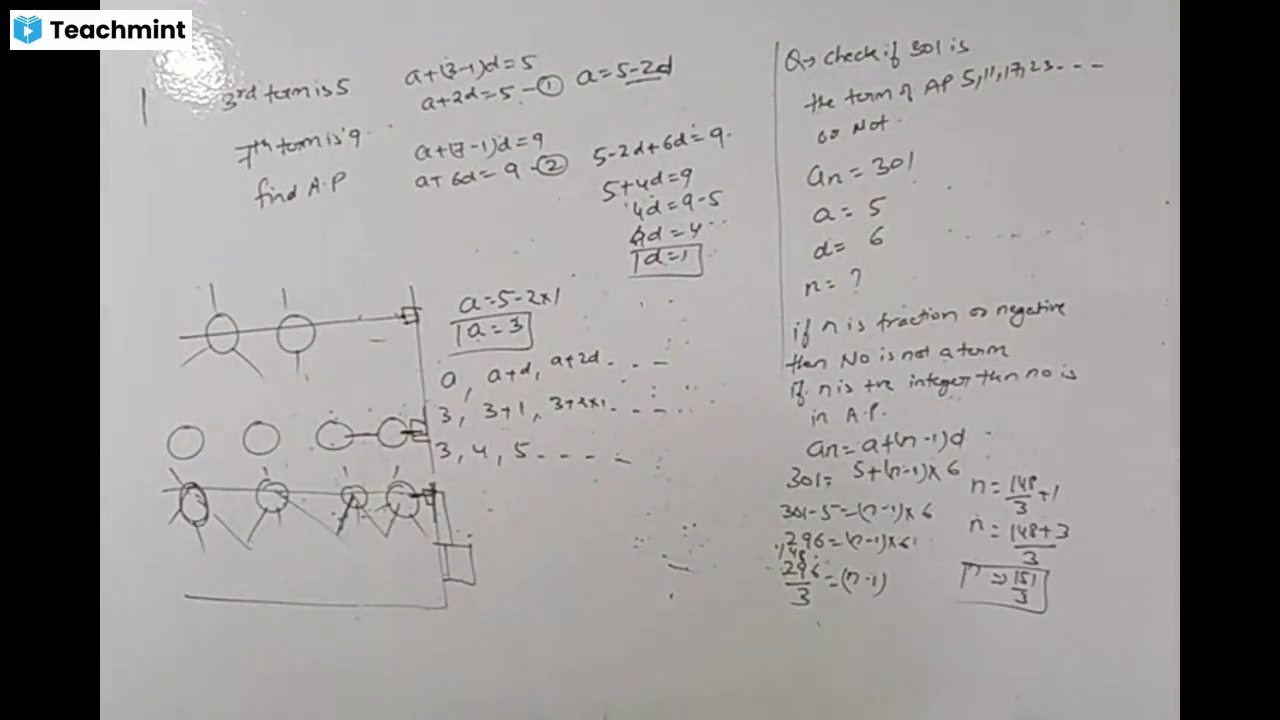 Teachmint
3rd term is 5
7th term is 9
find A.P
a+(3-1)d=5
a+2d=5-①
a=5-2d
a+(7-1)d=9
a+6d=9-②
5-2d+6d=9
5+4d=9
4d=9-5
4d=4
d=1
a=5-2×1
a=3
a, a+d, a+2d....
3, 3+1, 3+2×1....
3, 4, 5.....
Q→ check if 301 is
the term of AP 5,11,17,23....
or Not.
an=301
a=5
d=6
n=?
if n is fraction or negative
then No is not a term
if n is +ve integer then no is
in A.P.
an=a+(n-1)d
301=5+(n-1)×6
301-5=(n-1)×6
296=(n-1)×6
148
296/3=(n-1)
n=148/3+1
n=148+3/3
n=>151/3